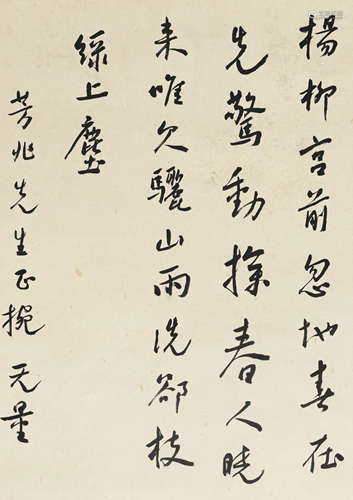 楊柳宮前忽地春在
先驚動探春人曉
来唯欠驪山雨洗郤枝
綠上塵
芳兆先生正擥 无量